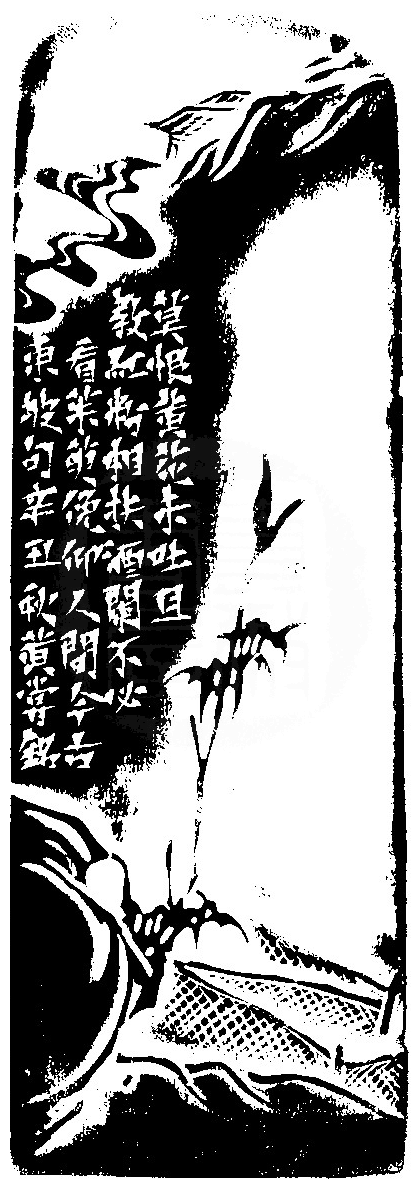 莫恨黄花未吐且
教紅粉相扶酒闌不必
看茱萸俛仰人間今古
東坡句辛丑秋黄嘗銘